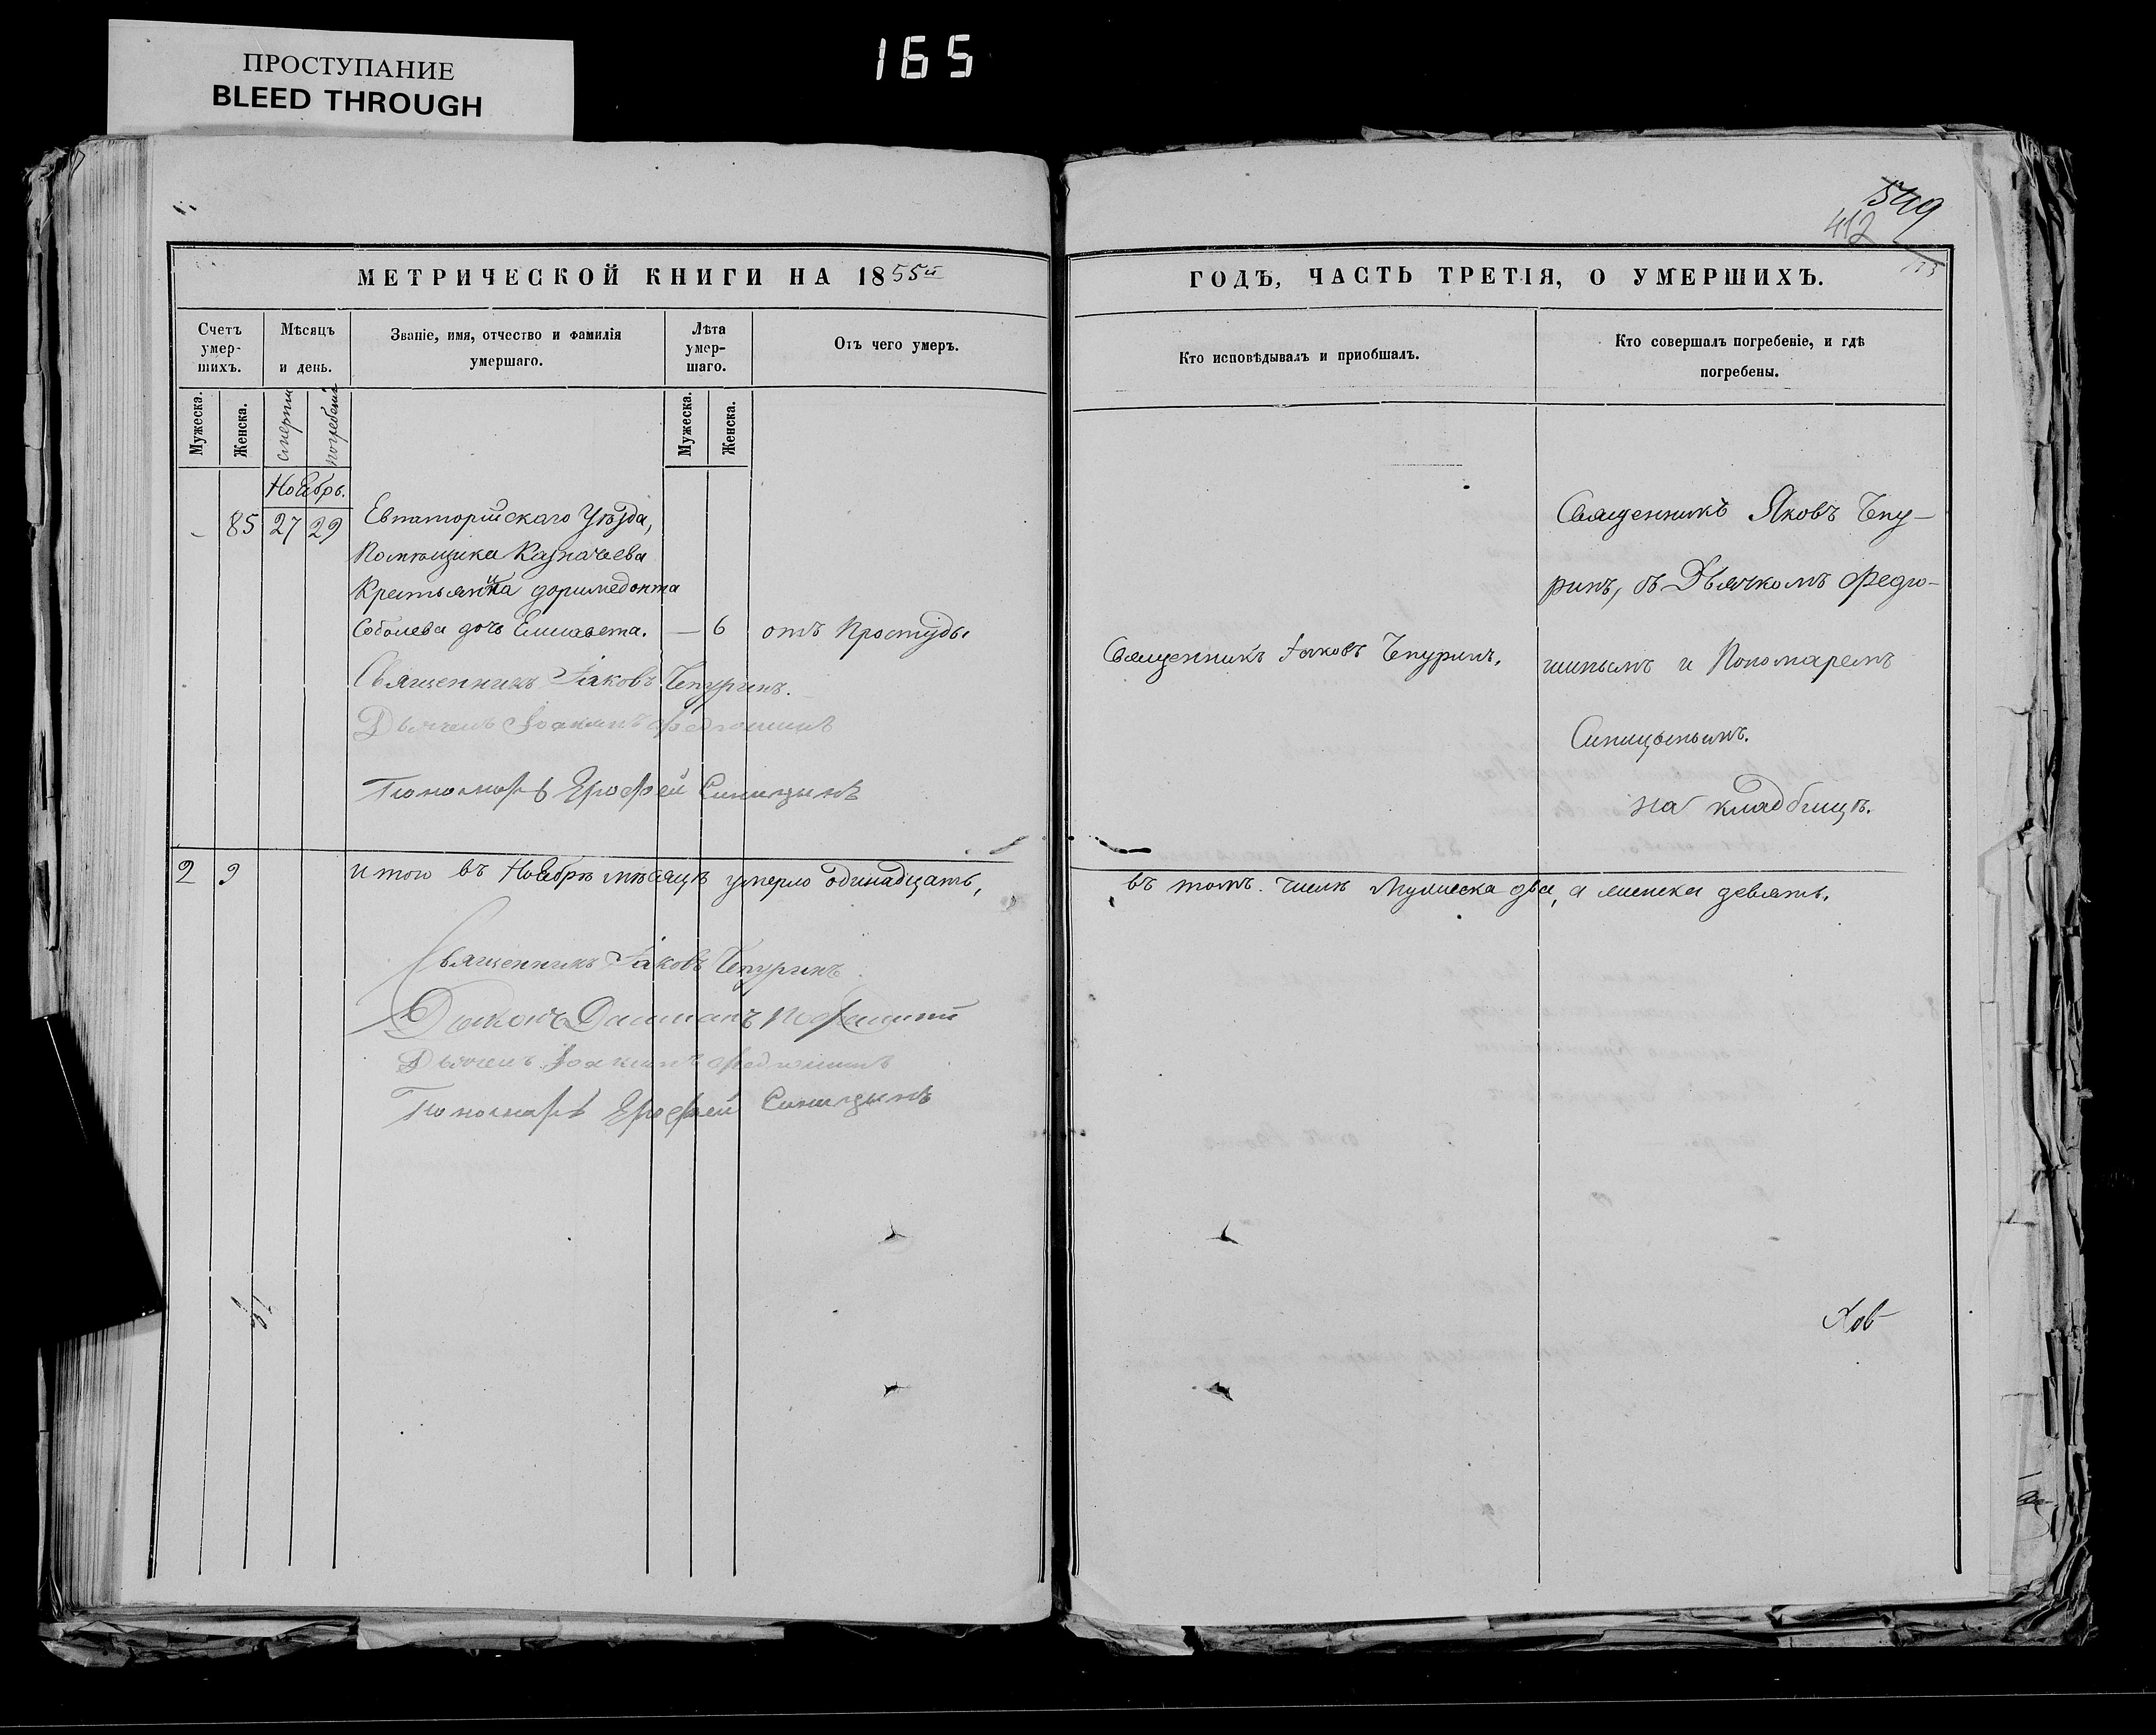 ПРОСТУПАНИЕ
BLEED THROUGH
165
549
412
МЕТРИЧЕСКОЙ КНИГИ НА 1855й
Счетъ умер-шихъ.
Мѣсяцъ и день.
Званіе, имя, отчество и фамилія умершаго.
Лѣта умер-шаго.
Отъ чего умеръ.
Мужеска.
Женска.
смерти
погребенія
Мужеска.
Женска.
Ноябрь.
85 27 29 Евпаторійскаго Уѣзда,
Помѣщика Казначеева
Крестьянина доримедонта
Соболева дочь Елисавета. — 6 отъ Простуды
Священникъ Іаковъ Чепуринъ.
Дьячекъ Іоакимъ Федюшинъ
Пономарь Ерофей Синицынъ
2 9 итого въ Ноябрѣ мѣсяцѣ умерло одинадцать,
Священникъ Іаковъ Чепуринъ.
Дьячекъ Іоакимъ Федюшинъ
Пономарь Ерофей Синицынъ
ГОДЪ, ЧАСТЬ ТРЕТІЯ, О УМЕРШИХЪ.
Кто исповѣдывалъ и приобщалъ.
Кто совершалъ погребеніе, и гдѣ погребены.
Священникъ Іаковъ Чпуринъ.
Священникъ Яковъ Чпу-
ринъ, съ Дьячкомъ Федю-
шинымъ и Пономаремъ
Синицынымъ.
на кладбищѣ.
въ томъ числѣ Мужеска два, а женска девять.